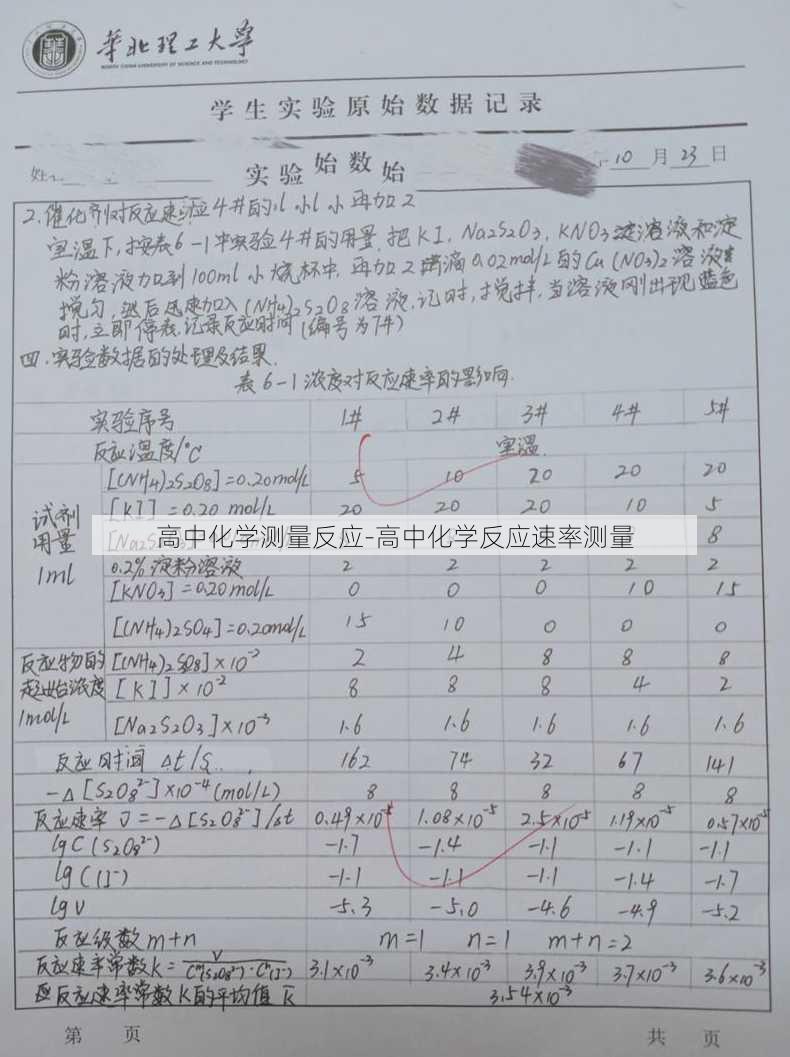 華北理工大學
NORTH CHINA UNIVERSITY OF SCIENCE AND TECHNOLOGY
学生实验原始数据记录
实验始数始 10月23日
2.催化剂对反应速 4#的 再加2
室温下,按表6-1中实验4#的用量,把KI,Na2S2O3,KNO3溶液和淀
粉溶液加到100ml小烧杯中,再加2滴0.02mol/L的Cu(NO3)2溶液
搅匀,然后迅速加入(NH4)2S2O8溶液,记时,搅拌,当溶液刚出现蓝色
时,立即停表,记录反应时间(编号为7#)
四.实验数据的处理及结果.
表6-1浓度对反应速率的影响.
实验序号 1# 2# 3# 4# 5#
反应温度/°C 室温.
试剂用量/ml
[(NH4)2S2O8]=0.20mol/L 5 10 20 20 20
[KI]=0.20mol/L 20 20 20 10 5
高中化学测量反应-高中化学反应速率测量
[Na2S 8
0.2%淀粉溶液 2 2 2 2 2
[KNO3]=0.20mol/L 0 0 0 10 15
[(NH4)2SO4]=0.20mol/L 15 10 0 0 0
反应物的起始浓度/mol/L
[(NH4)2S2O8]×10⁻² 2 4 8 8 8
[KI]×10⁻² 8 8 8 4 2
[Na2S2O3]×10⁻³ 1.6 1.6 1.6 1.6 1.6
反应时间 Δt/s 162 74 32 67 141
-Δ[S2O8²⁻]×10⁻⁴(mol/L) 8 8 8 8 8
反应速率 J=-Δ[S2O8²⁻]/Δt 0.49×10⁻⁵ 1.08×10⁻⁵ 2.5×10⁻⁵ 1.19×10⁻⁵ 0.57×10⁻⁵
lgC(S2O8²⁻) -1.7 -1.4 -1.1 -1.1 -1.1
lgC(I⁻) -1.1 -1.1 -1.1 -1.4 -1.7
lgV -5.3 -5.0 -4.6 -4.9 -5.2
反应级数m+n m=1 n=1 m+n=2
反应速率常数k=V/Cᵐ(S2O8²⁻)·Cⁿ(I⁻) 3.1×10⁻³ 3.4×10⁻³ 3.9×10⁻³ 3.7×10⁻³ 3.6×10⁻³
反应速率常数k的平均值 k̄ 3.54×10⁻³
第 页 共 页